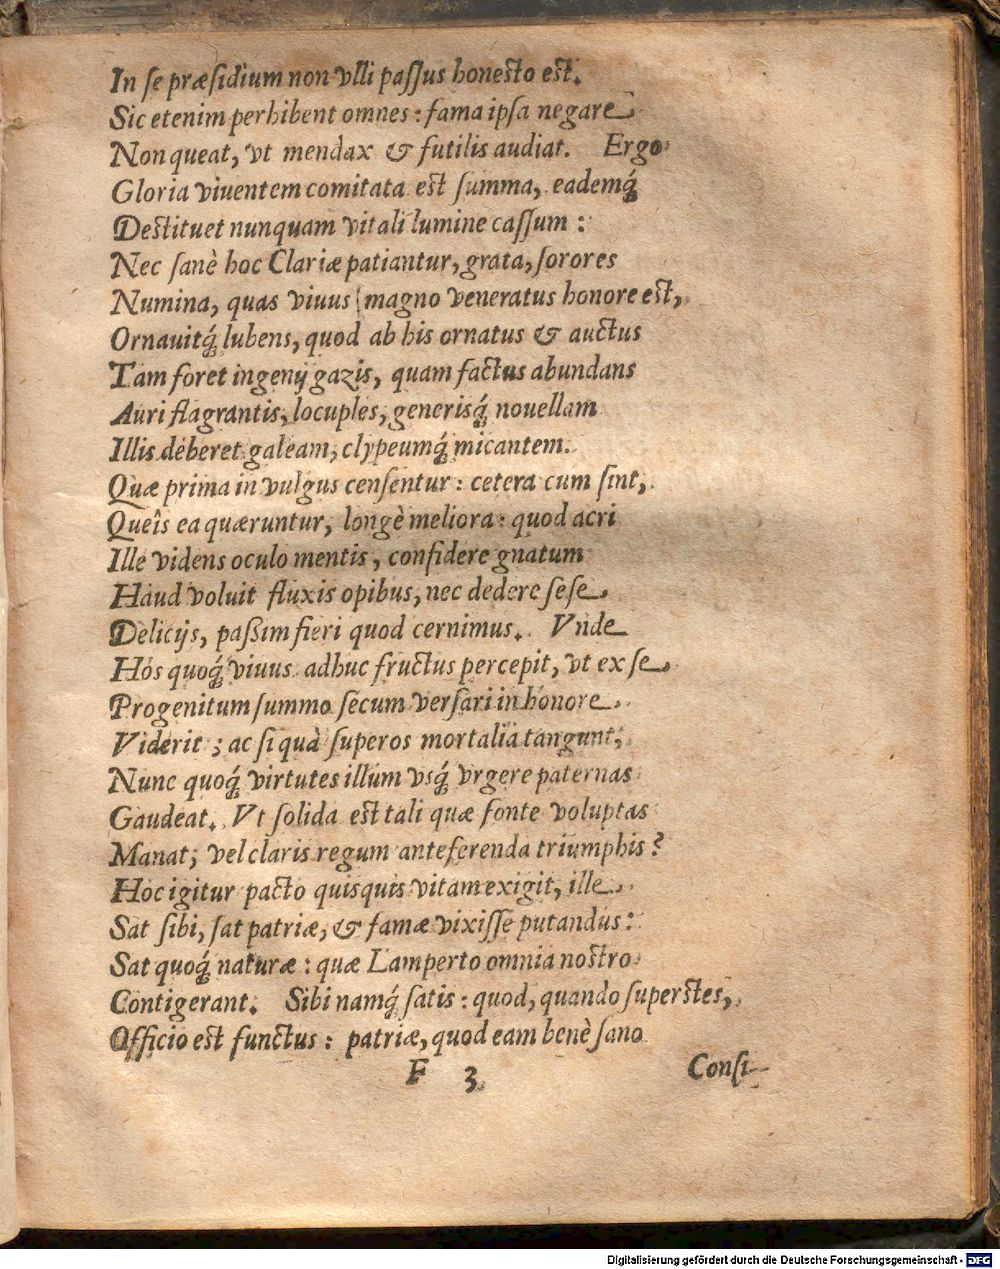 In se præsidium non vlli passus honesto est.
Sic etenim perhibent omnes: fama ipsa negare
Non queat, vt mendax & futilis audiat. Ergo
Gloria viuentem comitata est summa, eademq́
Destituet nunquam vitali lumine cassum:
Nec sanè hoc Clariæ patiantur, grata, sorores
Numina, quas viuus magno veneratus honore est,
Ornauitq́ lubens, quod ab his ornatus & auctus
Tam foret ingenij gazis, quam factus abundans
Auri flagrantis, locuples, generisq́ nouellam
Illis deberet galeam, clypeumq́ micantem.
Quæ prima in vulgus censentur: cetera cum sint,
Queîs ea quæruntur, longè meliora: quod acri
Ille videns oculo mentis, confidere gnatum
Haud voluit fluxis opibus, nec dedere sese,
Delicijs, paßim fieri quod cernimus. Vnde
Hos quoq́ viuus adhuc fructus percepit, vt ex se,
Progenitum summo secum versari in honore
Viderit; ac si quà superos mortalia tangunt,
Nunc quoq́ virtutes illum vsq́ vrgere paternas
Gaudeat. Vt solida est tali quæ fonte voluptas
Manat; vel claris regum anteferenda triumphis?
Hoc igitur pacto quisquis vitam exigit, ille
Sat sibi, sat patriæ, & famæ vixisse putandus:
Sat quoq́ naturæ: quæ Lamperto omnia nostro
Contigerant. Sibi namq́ satis: quod, quando superstes,
Officio est functus: patriæ, quod eam benè sano
F 3 Consi-
Digitalisierung gefördert durch die Deutsche Forschungsgemeinschaft - DFG